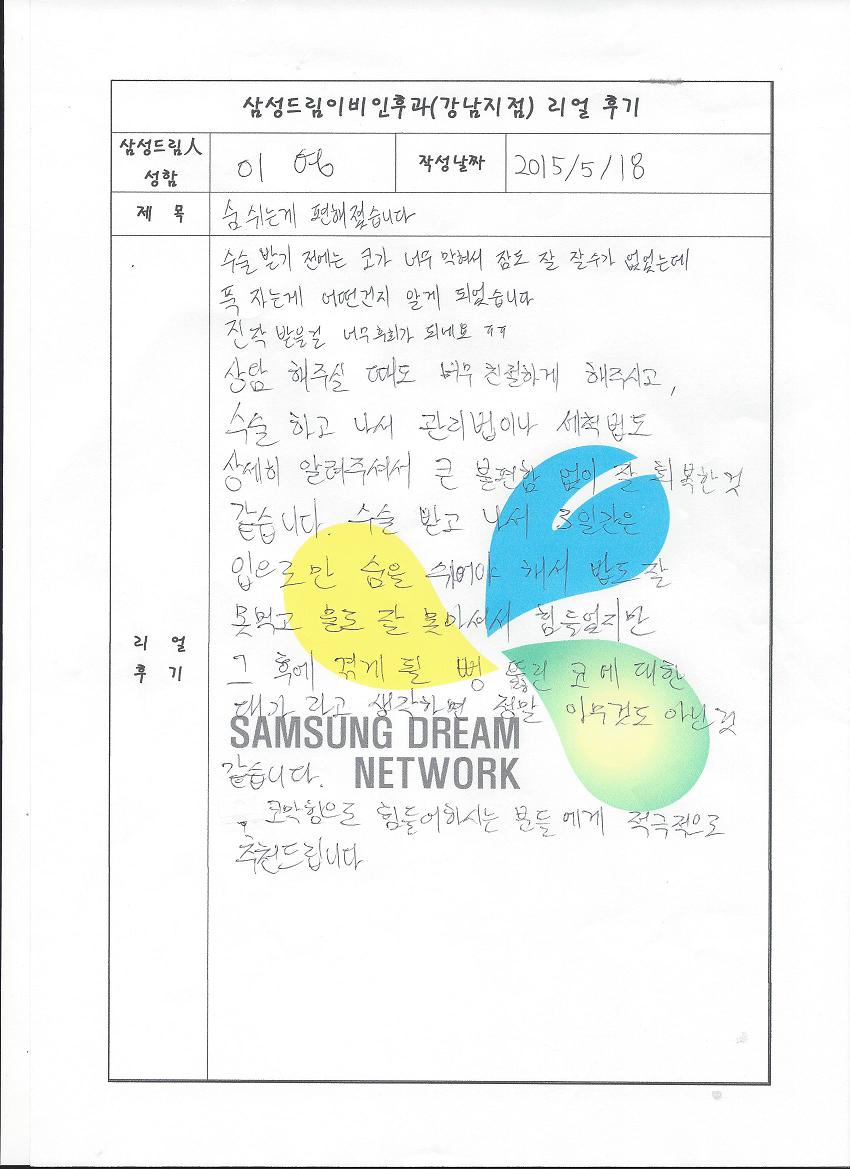 삼성드림이비인후과(강남지점) 리얼 후기
삼성드림人 성함
이 영
작성날짜
2015/5/18
제 목
숨 쉬는게 편해졌습니다
리 얼
후 기
수술 받기 전에는 코가 너무 막혀서 잠도 잘 잘수가 없었는데
푹 자는게 어떤건지 알게 되었습니다
진작 받을걸 너무후회가 되네요 ㅠㅠ
상담 해주실 때도 너무 친절하게 해주시고,
수술 하고 나서 관리법이나 세척법도
상세히 알려주셔서 큰 불편함 없이 잘 회복한것
같습니다. 수술 받고 나서 3일간은
입으로만 숨을 쉬어야 해서 밥도 잘
못먹고 물도 잘 못마셔서 힘들었지만
그 후에 겪게 될 뻥 뚫린 코에 대한
대가 라고 생각하면 정말 아무것도 아닌 것
같습니다.
SAMSUNG DREAM
NETWORK
코막힘으로 힘들어하시는 분들에게 적극적으로
추천드립니다